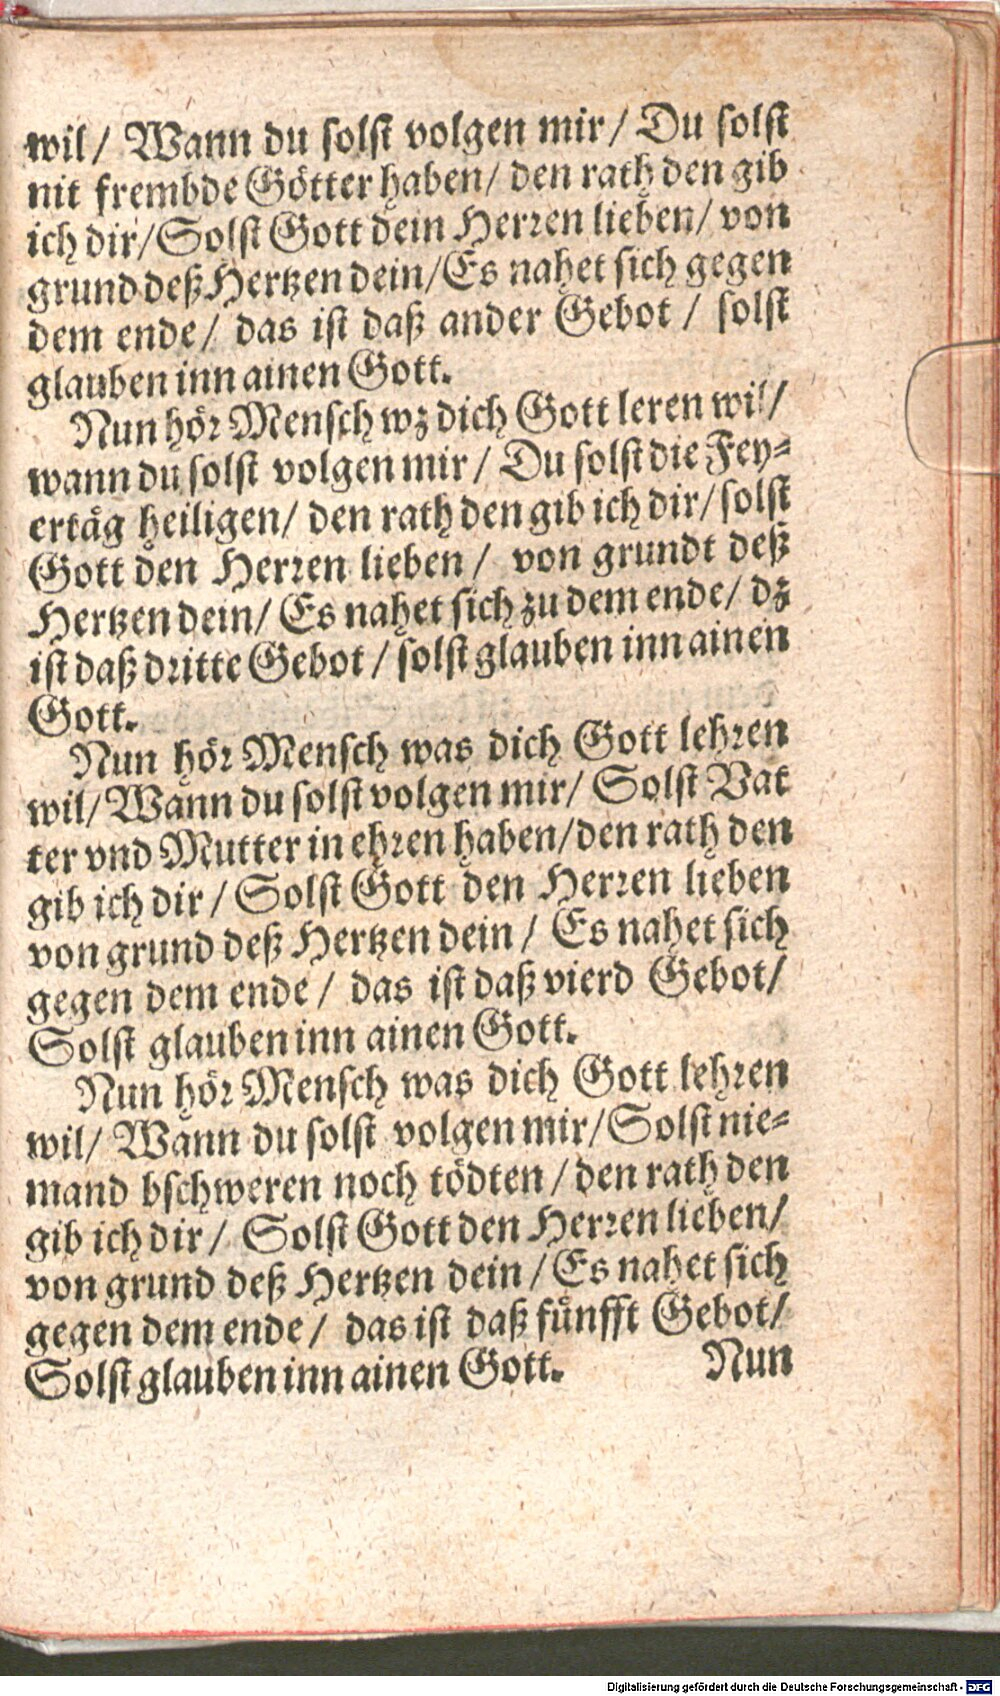 wil/ Wann du solst volgen mir/ Du solst
nit frembde Götter haben/ den rath den gib
ich dir/ Solst Gott dein Herren lieben/ von
grund deß Hertzen dein/ Es nahet sich gegen
dem ende/ das ist daß ander Gebot/ solst
glauben inn ainen Gott.
Nun hör Mensch wz dich Gott leren wil/
wann du solst volgen mir/ Du solst die Fey⸗
ertäg heiligen/ den rath den gib ich dir/ solst
Gott den Herren lieben/ von grundt deß
Hertzen dein/ Es nahet sich zu dem ende/ dz
ist daß dritte Gebot/ solst glauben inn ainen
Gott.
Nun hör Mensch was dich Gott lehren
wil/ Wann du solst volgen mir/ Solst Vat
ter vnd Mutter in ehren haben/ den rath den
gib ich dir/ Solst Gott den Herren lieben
von grund deß Hertzen dein/ Es nahet sich
gegen dem ende/ das ist daß vierd Gebot/
Solst glauben inn ainen Gott.
Nun hör Mensch was dich Gott lehren
wil/ Wann du solst volgen mir/ Solst nie⸗
mand bschweren noch tödten/ den rath den
gib ich dir/ Solst Gott den Herren lieben/
von grund deß Hertzen dein/ Es nahet sich
gegen dem ende/ das ist daß fünfft Gebot/
Solst glauben inn ainen Gott. Nun
Digitalisierung gefördert durch die Deutsche Forschungsgemeinschaft - DFG